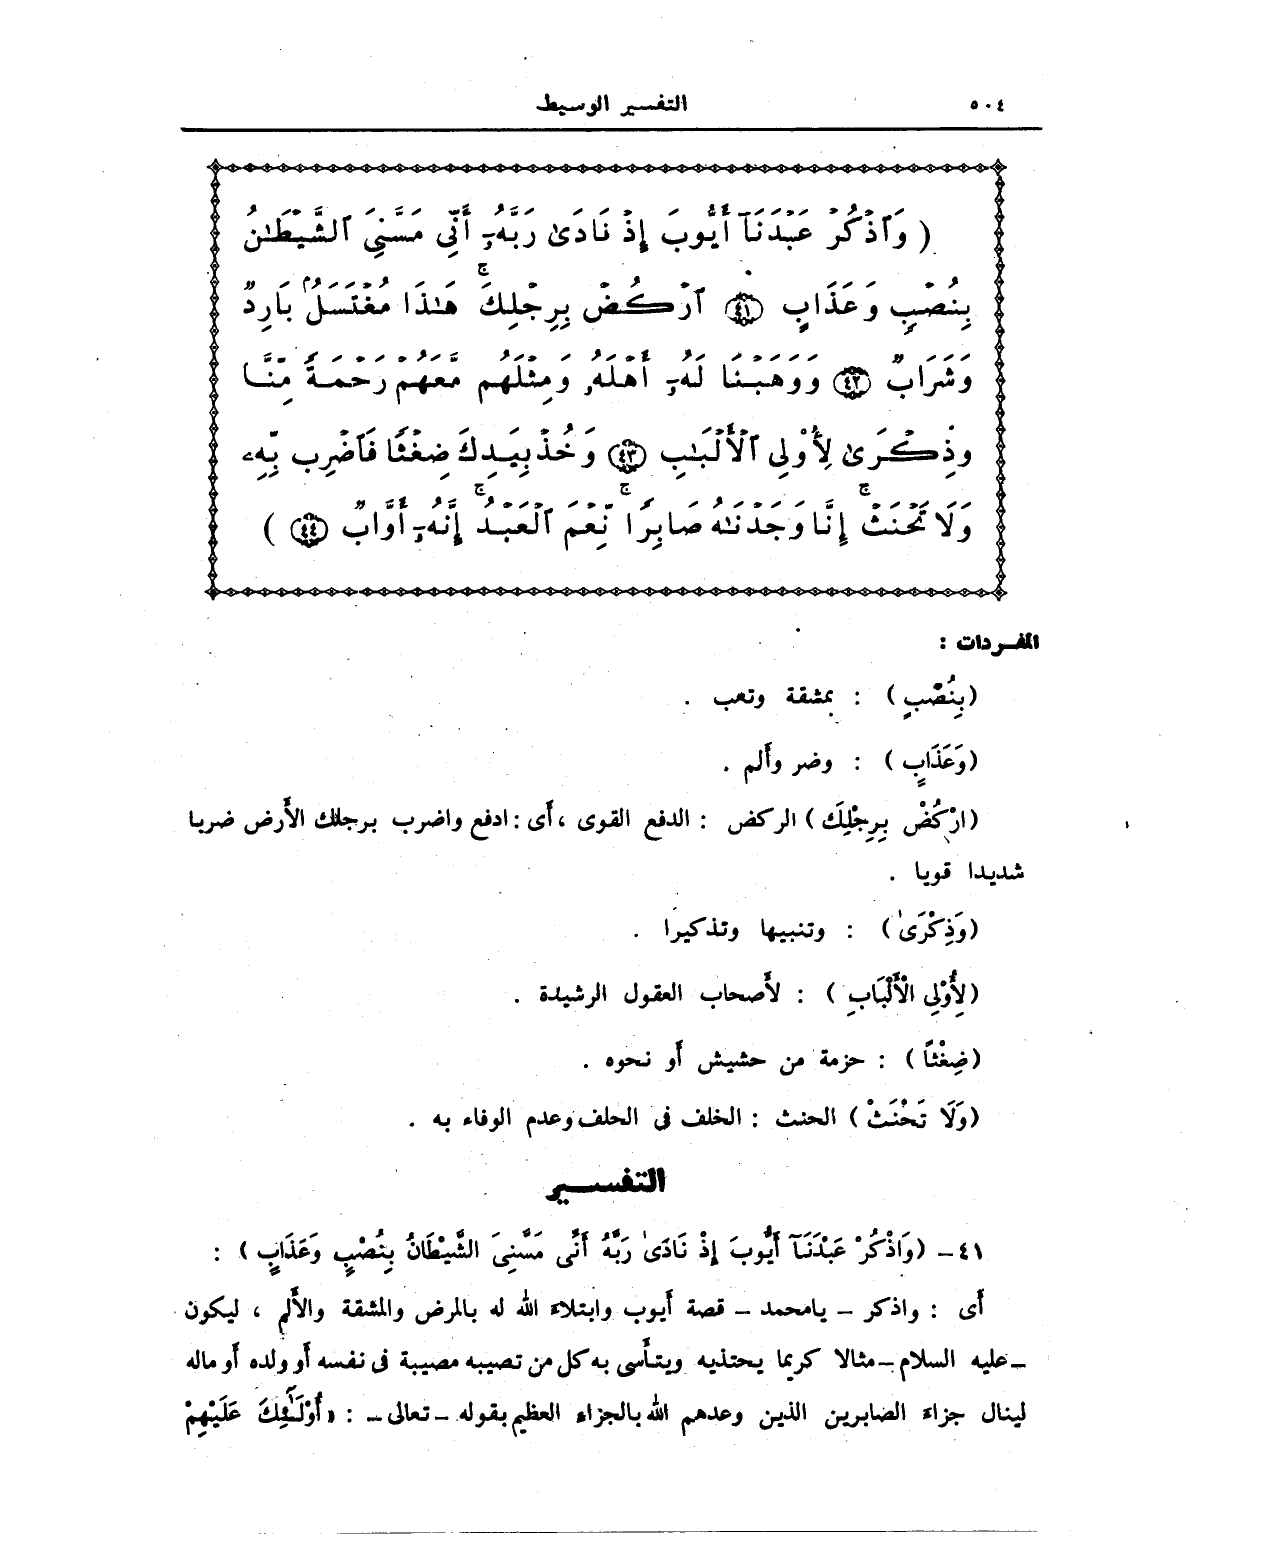 ٥٠٤
التفسير الوسيط
( وَٱذۡكُرۡ عَبۡدَنَآ أَيُّوبَ إِذۡ نَادَىٰ رَبَّهُۥٓ أَنِّي مَسَّنِيَ ٱلشَّيۡطَٰنُ
بِنُصۡبٖ وَعَذَابٍ ﴿٤١﴾ ٱرۡكُضۡ بِرِجۡلِكَۖ هَٰذَا مُغۡتَسَلُۢ بَارِدٞ
وَشَرَابٞ ﴿٤٢﴾ وَوَهَبۡنَا لَهُۥٓ أَهۡلَهُۥ وَمِثۡلَهُم مَّعَهُمۡ رَحۡمَةٗ مِّنَّا
وَذِكۡرَىٰ لِأُوْلِي ٱلۡأَلۡبَٰبِ ﴿٤٣﴾ وَخُذۡ بِيَدِكَ ضِغۡثٗا فَٱضۡرِب بِّهِۦ
وَلَا تَحۡنَثۡۚ إِنَّا وَجَدۡنَٰهُ صَابِرٗاۚ نِّعۡمَ ٱلۡعَبۡدُۚ إِنَّهُۥٓ أَوَّابٞ ﴿٤٤﴾ )
المفردات :
(بِنُصْبٍ) : بمشقة وتعب .
(وَعَذَابٍ) : وضر وألم .
(ارْكُضْ بِرِجْلِكَ) الركض : الدفع القوى ، أى : ادفع واضرب برجلك الأرض ضربا
شديدا قويا .
(وَذِكْرَىٰ) : وتنبيها وتذكيرا .
(لِأُوْلِى الْأَلْبَابِ) : لأصحاب العقول الرشيدة .
(ضِغْثًا) : حزمة من حشيش أو نحوه .
(وَلَا تَحْنَثْ) الحنث : الخلف فى الحلف وعدم الوفاء به .
التفسير
٤١ – (وَاذْكُرْ عَبْدَنَآ أَيُّوبَ إِذْ نَادَىٰ رَبَّهُ أَنِّى مَسَّنِىَ الشَّيْطَانُ بِنُصْبٍ وَعَذَابٍ) :
أى : واذكر – يامحمد – قصة أيوب وابتلاء الله له بالمرض والمشقة والألم ، ليكون
– عليه السلام – مثالا كريما يحتذيه ويتأسى به كل من تصيبه مصيبة فى نفسه أو ولده أو ماله
لينال جزاء الصابرين الذين وعدهم الله بالجزاء العظيم بقوله – تعالى – : «أُوْلَـٰٓئِكَ عَلَيْهِمْ